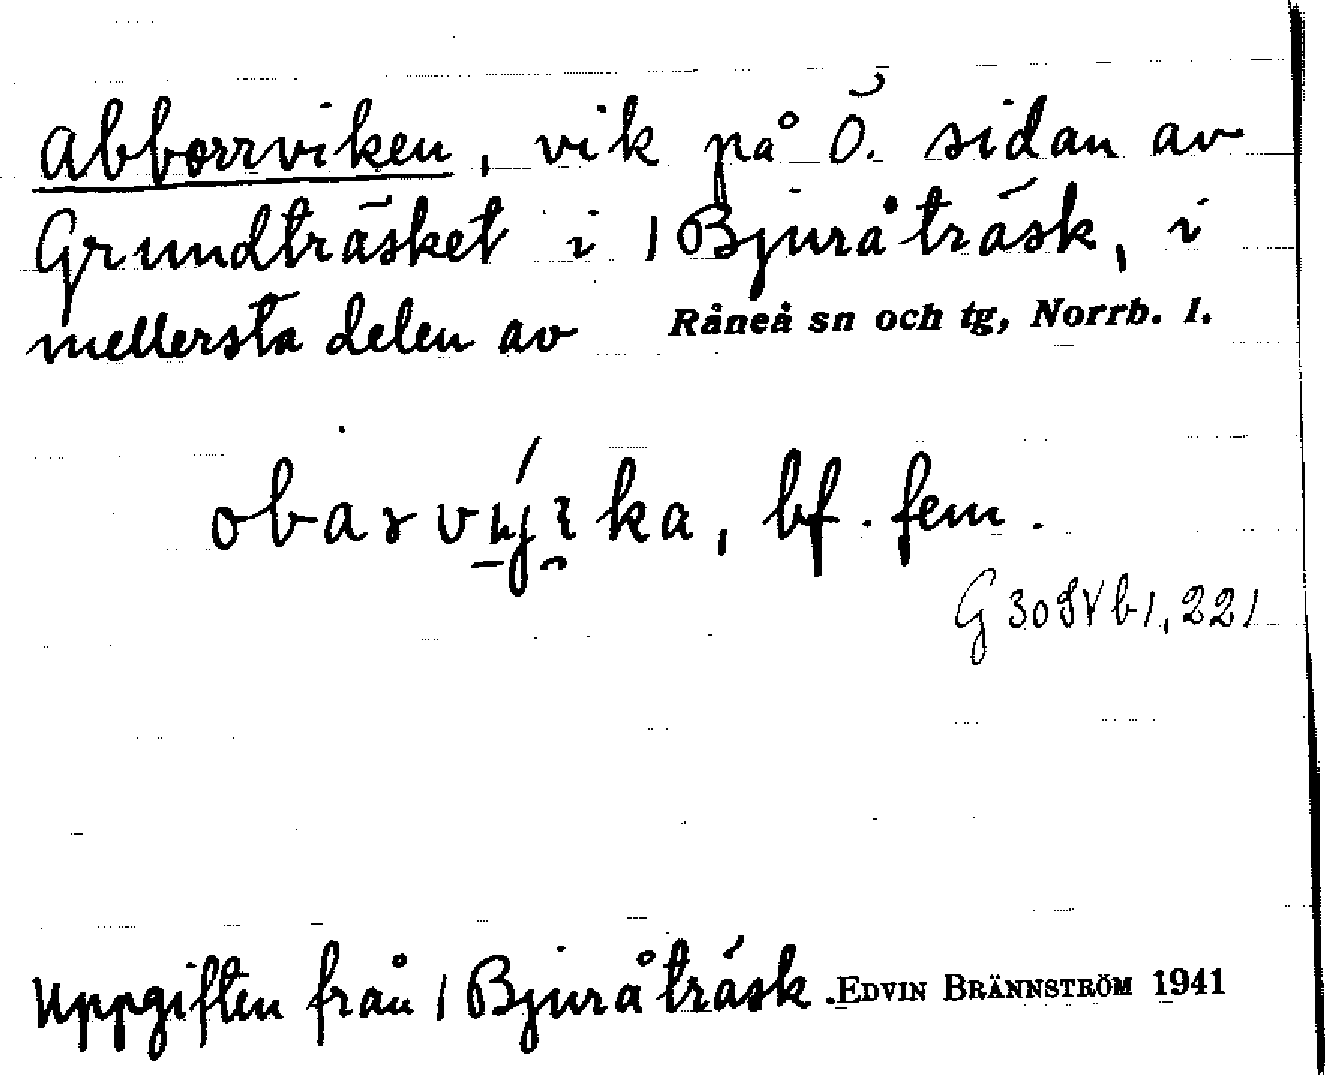 Abborrviken, vik på Ö. sidan av
Grundträsket i 1 Bjuråträsk, i
mellersta delen av Råneå sn och tg, Norrb. l.
bf. fem.
G 30 SV b 1, 221
Uppgiften från 1 Bjuråträsk. EDVIN BRÄNNSTRÖM 1941